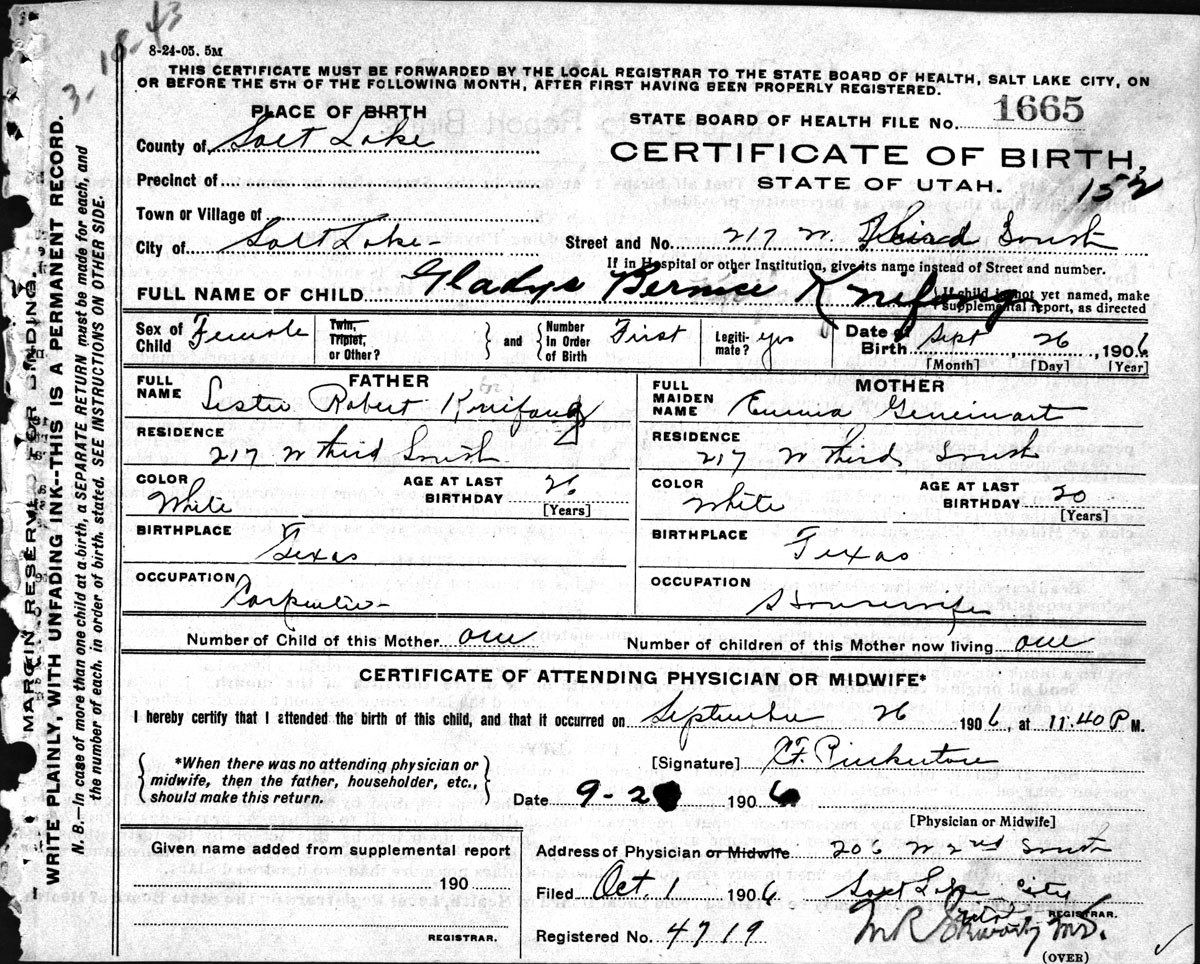 3-18-43
8-24-05. 5M
THIS CERTIFICATE MUST BE FORWARDED BY THE LOCAL REGISTRAR TO THE STATE BOARD OF HEALTH, SALT LAKE CITY, ON
OR BEFORE THE 5TH OF THE FOLLOWING MONTH, AFTER FIRST HAVING BEEN PROPERLY REGISTERED.
PLACE OF BIRTH
STATE BOARD OF HEALTH FILE No. 1665
County of Salt Lake
CERTIFICATE OF BIRTH,
Precinct of
STATE OF UTAH.
152
Town or Village of
City of Salt Lake
Street and No. 217 W. Third South
If in Hospital or other Institution, give its name instead of Street and number.
FULL NAME OF CHILD Gladys Bernice Knifong
If child is not yet named, make
supplemental report, as directed
Sex of Child Female
Twin, Triplet, or Other?
and
Number In Order of Birth First
Legiti-mate? yes
Date of Birth Sept 26, 1906
[Month] [Day] [Year]
FATHER
FULL NAME Robert Knifong
RESIDENCE 217 W third South
COLOR White
AGE AT LAST BIRTHDAY 26
[Years]
BIRTHPLACE Texas
OCCUPATION Carpenter
MOTHER
FULL MAIDEN NAME Emma
RESIDENCE 217 W third South
COLOR White
AGE AT LAST BIRTHDAY 20
[Years]
BIRTHPLACE Texas
OCCUPATION Housewife
Number of Child of this Mother one
Number of children of this Mother now living one
CERTIFICATE OF ATTENDING PHYSICIAN OR MIDWIFE*
I hereby certify that I attended the birth of this child, and that it occurred on September 26 1906, at 11:40 P M.
*When there was no attending physician or
midwife, then the father, householder, etc.,
should make this return.
[Signature] Pinkerton
Date 9-2 1906
[Physician or Midwife]
Given name added from supplemental report
190
REGISTRAR.
Address of Physician or Midwife 206 W 2nd South
Filed Oct. 1 1906 Salt Lake City
REGISTRAR.
Registered No. 4719
M.D.
(OVER)
MARGIN RESERVED FOR BINDING
WRITE PLAINLY, WITH UNFADING INK--THIS IS A PERMANENT RECORD.
N. B.—In case of more than one child at a birth, a SEPARATE RETURN must be made for each, and
the number of each, in order of birth, stated. SEE INSTRUCTIONS ON OTHER SIDE.